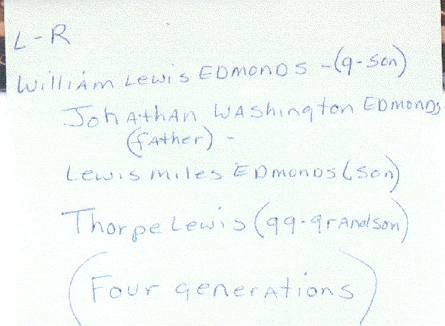 L-R
William Lewis EDMONDS -(g-son)
Johathan Washington EDMONDS
(father) -
Lewis miles EDMONDS (son)
Thorpe Lewis (gg-grandson)
(Four generations)